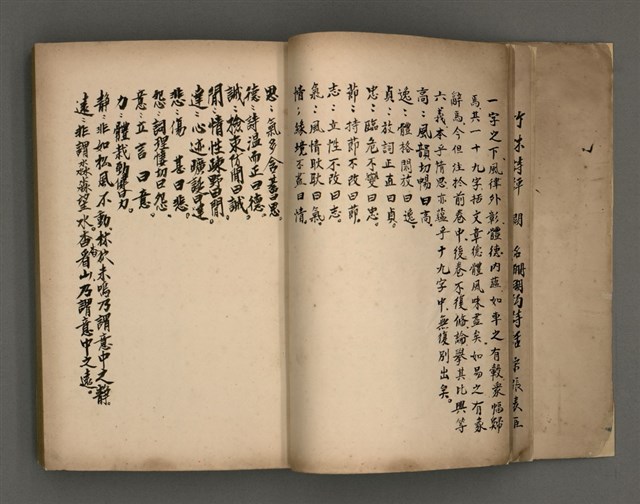 一字之下風律外彰體德内蘊如車之有轂衆輻歸
焉其一十九字括文章德體風味盡矣如易之有彖
辭焉今但注於前卷中後卷不復備論擧其比興等
六義本乎情思亦蘊乎十九字中無復別出矣。
高：風韻切暢曰高。
逸：體格閒放曰逸。
貞：放詞正直曰貞。
忠：臨危不變曰忠。
節：持節不改曰節。
志：立性不改曰志。
氣：風情耿耿曰氣。
情：緣境不盡曰情。
思：氣多含蓄曰思。
德：詩溫而正曰德。
誡：檢束防閑曰誡。
閒：情性疎野曰閒。
達：心迹曠誕曰達。
悲：傷甚曰悲。
怨：詞理悽切曰怨。
意：立言曰意。
力：體裁勁健曰力。
靜：非如松風不動林狖未鳴乃謂意中之靜。
遠：非謂淼淼望水杳杳看山乃謂意中之遠。